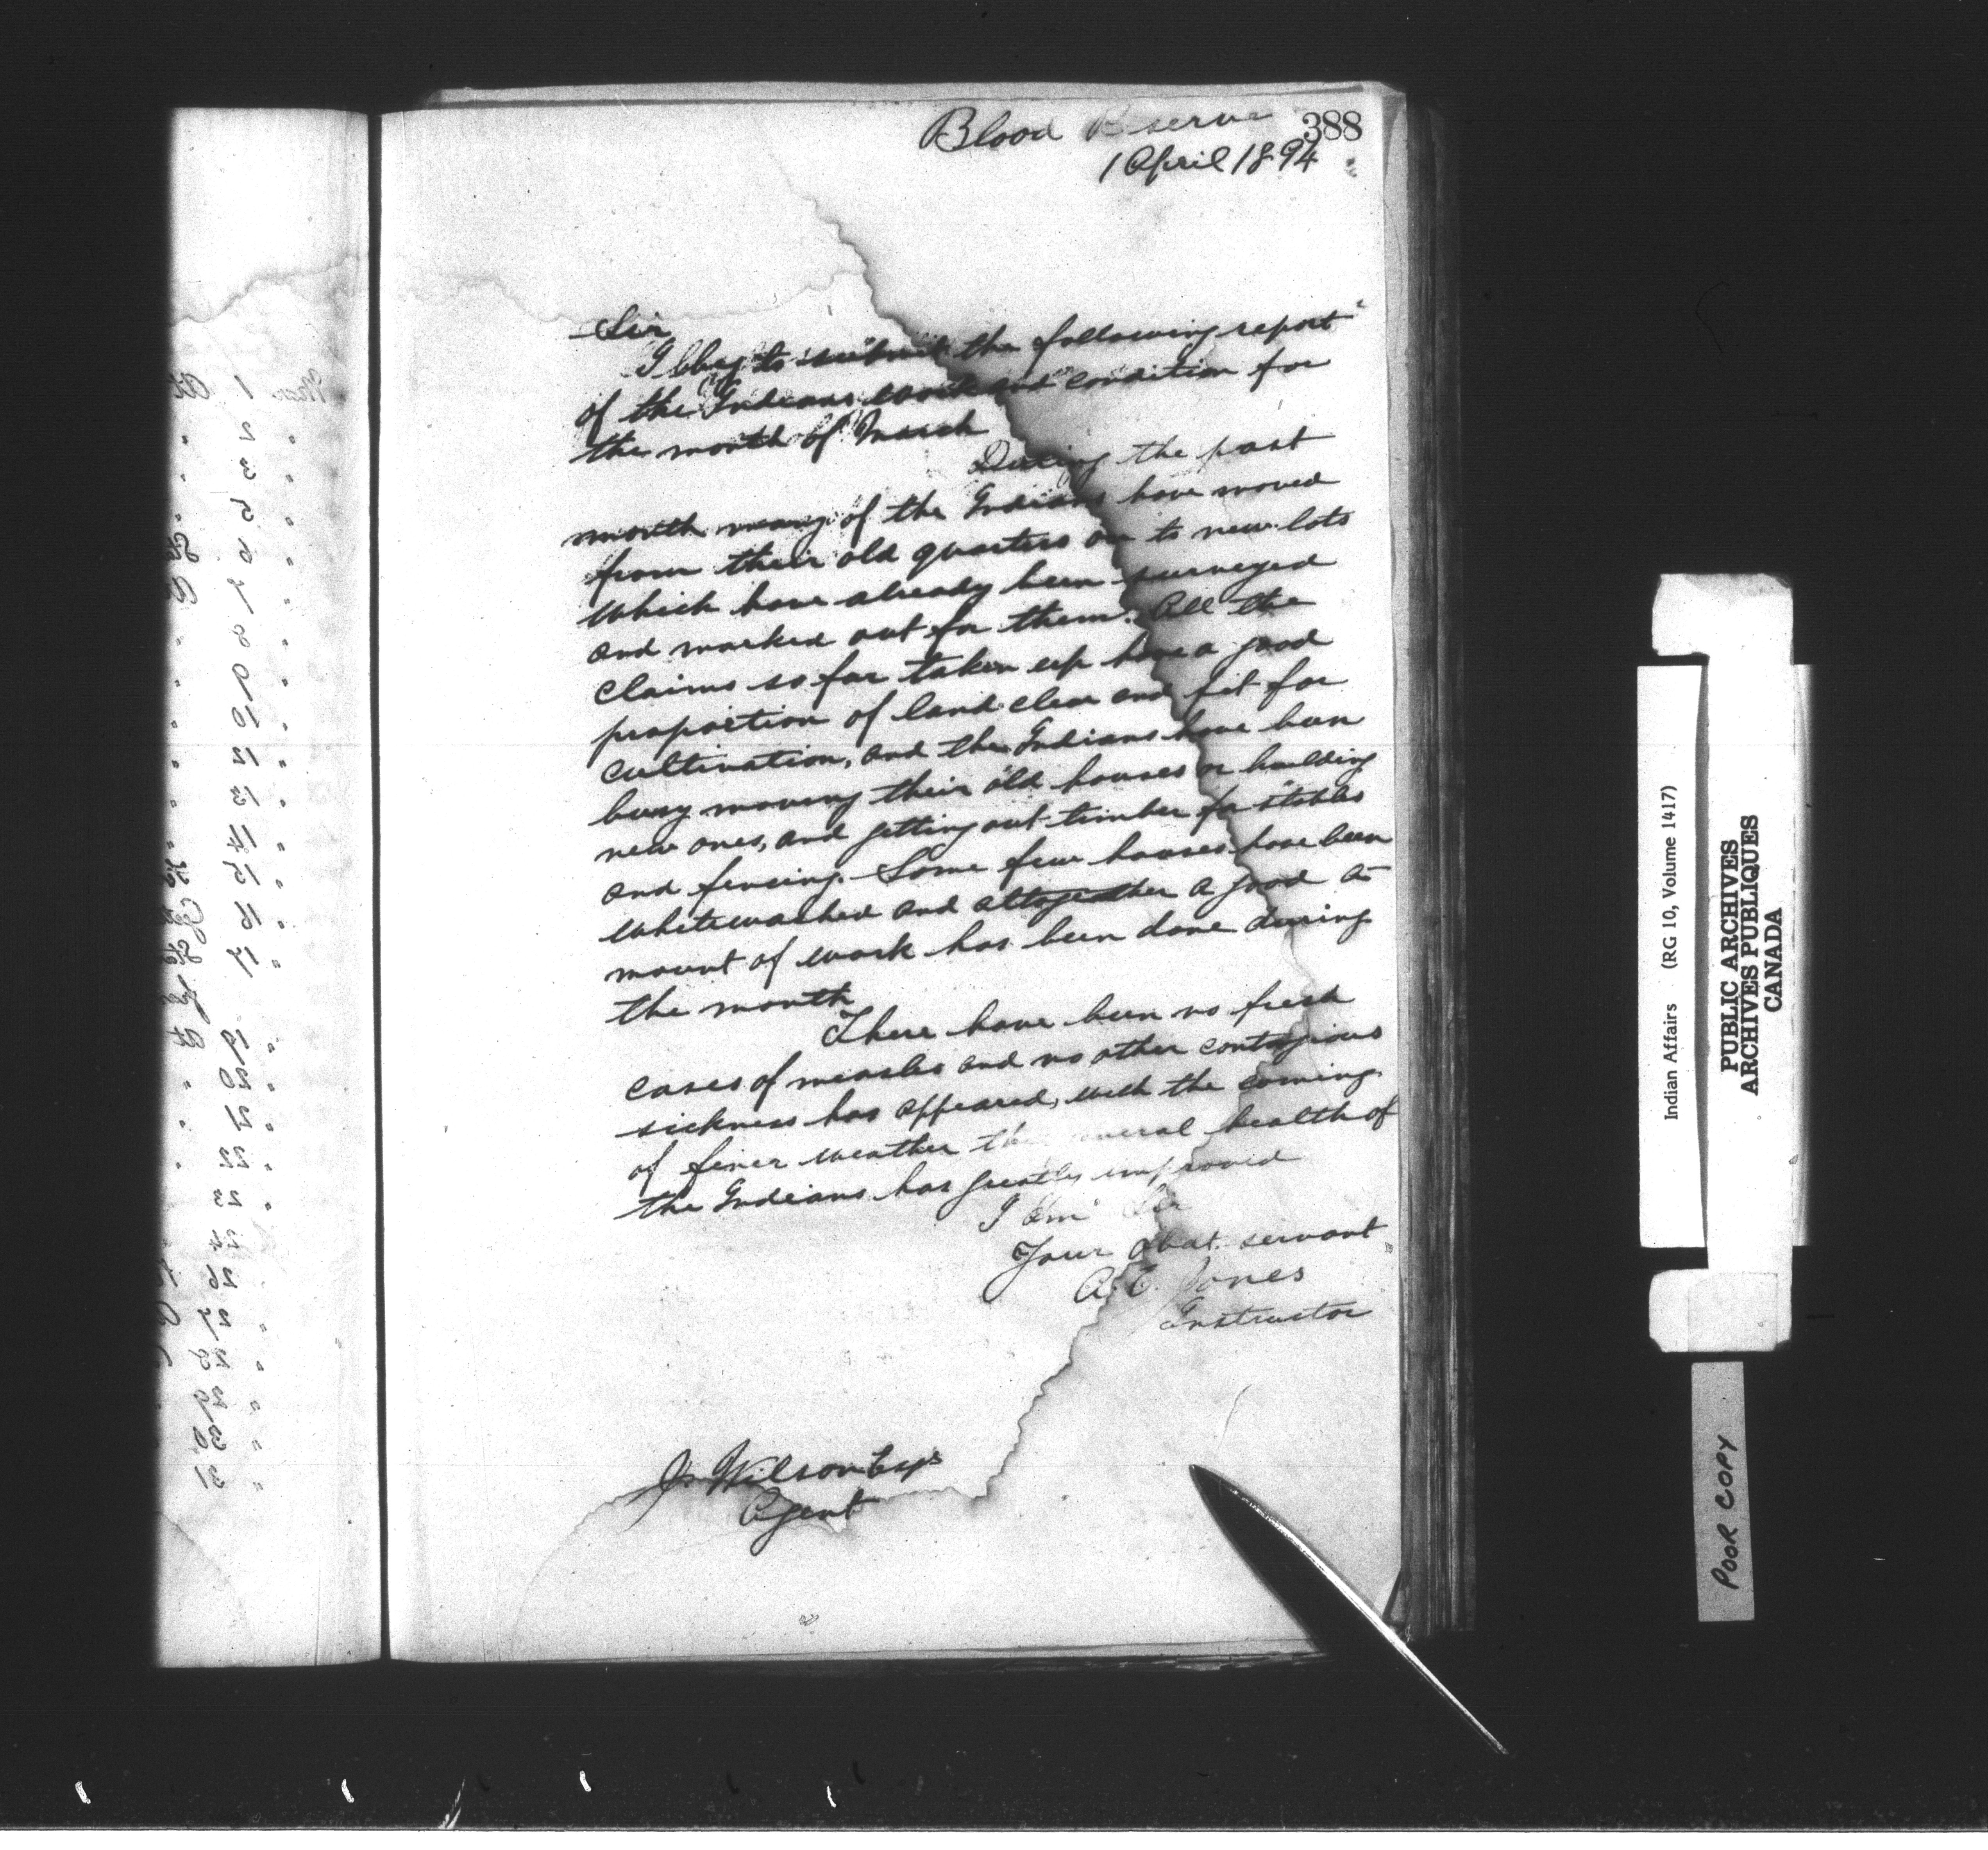 388
Blood Reserve
1 April 1894
Sir
I beg to submit the following report
of the Indians work and condition for
the month of March
During the past
month many of the Indians have moved
from their old quarters on to new lots
which have already been surveyed
and marked out for them. All the
claims so far taken up have a good
proportion of land clear and fit for
cultivation, and the Indians have been
busy moving their old houses or building
new ones, and getting out timber for stables
and fencing. Some few houses have been
whitewashed and altogether a good a-
mount of work has been done during
the month
There have been no fresh
cases of measles and no other contagious
sickness has appeared, with the coming
of finer weather the general health of
the Indians has greatly improved
I am Sir
Your obdt. servant
A. E. Jones
Instructor
J. Wilson Esqr
Agent
Indian Affairs (RG 10, Volume 1417)
PUBLIC ARCHIVES
ARCHIVES PUBLIQUES
CANADA
POOR COPY